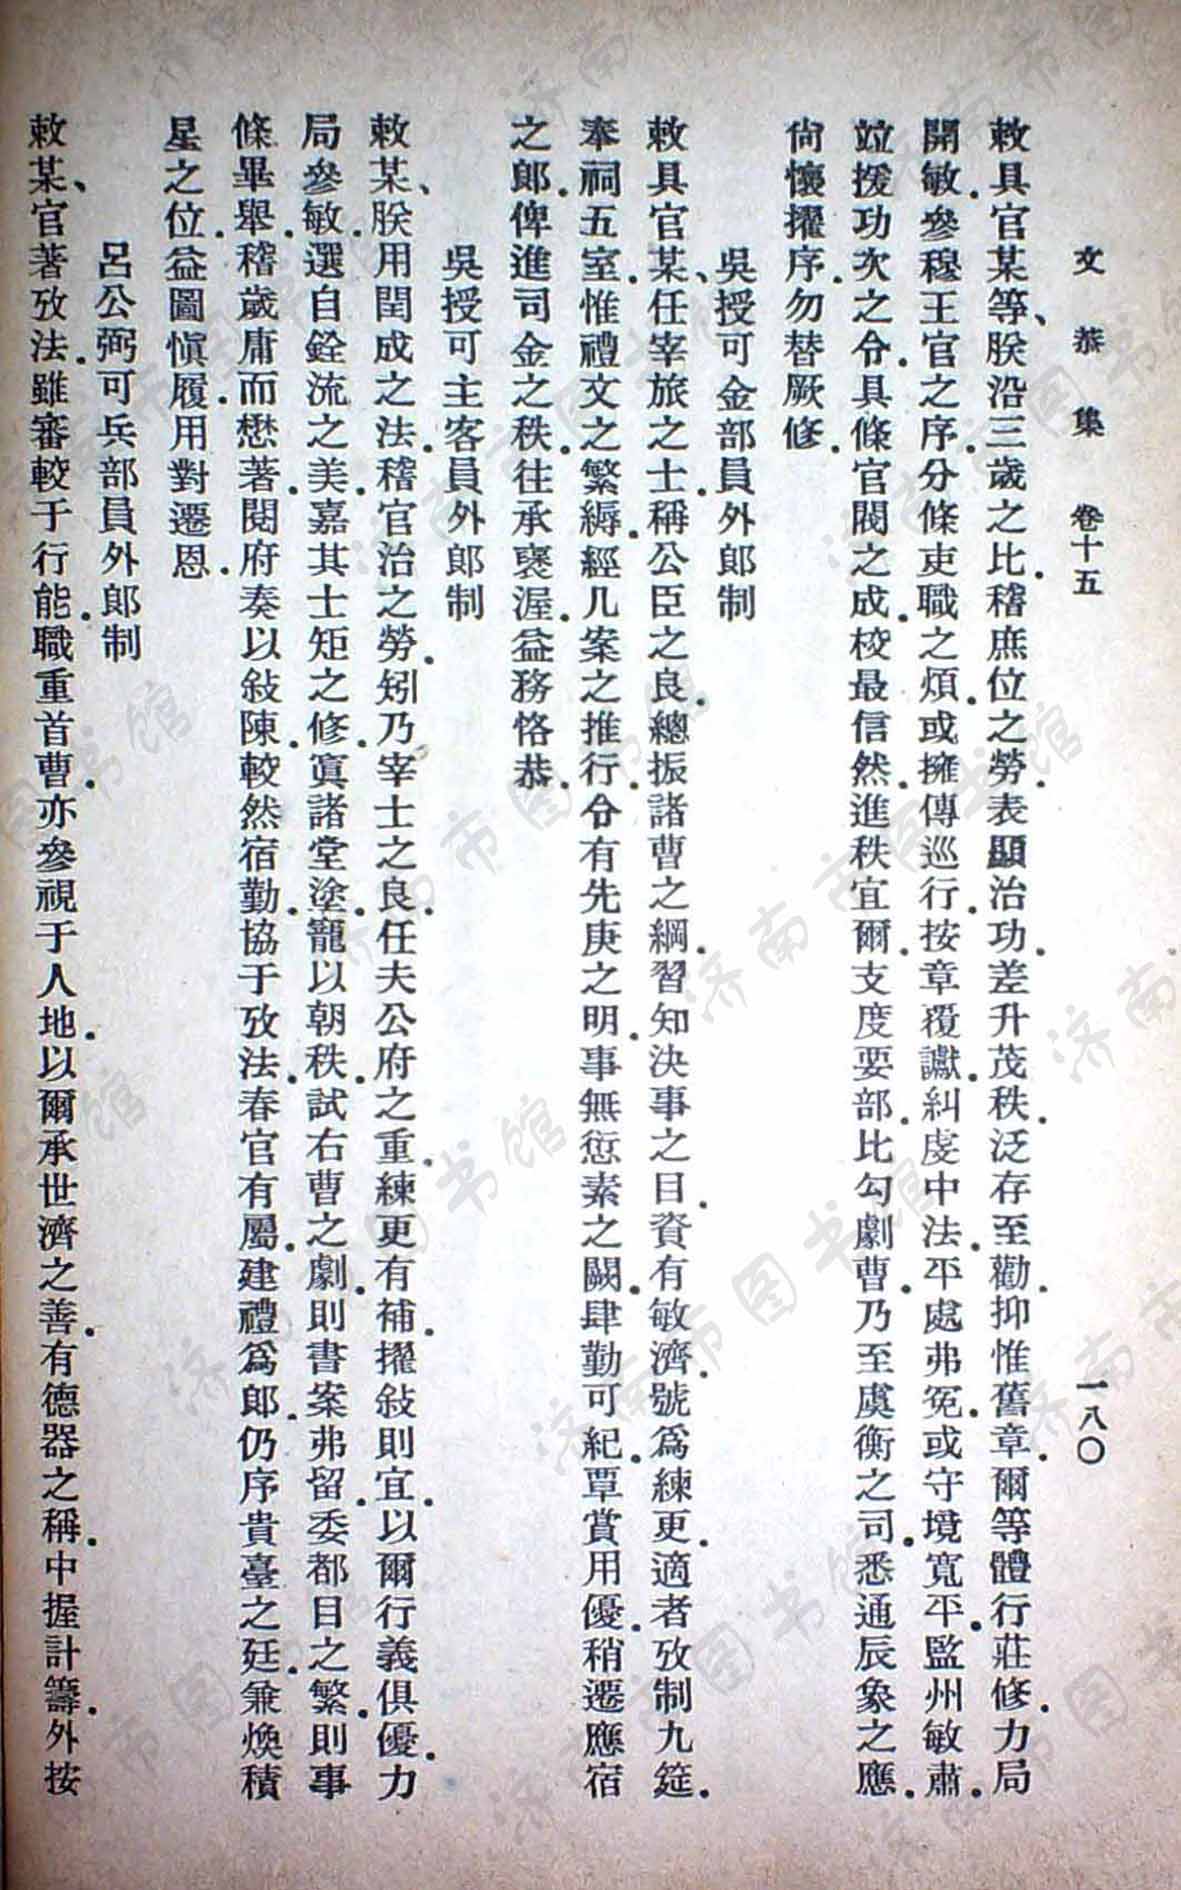 文恭集 卷十五 一八〇
敕具官某等、朕沿三歲之比.稽庶位之勞.表顯治功.差升茂秩.泛存至勸.抑惟舊章.爾等體行莊修.力局
開敏.參穆王官之序.分條吏職之煩.或擁傳巡行.按章覆讞.糾虔中法.平處弗冤.或守境寬平.監州敏肅.
竝援功次之令.具條官閥之成.校最信然.進秩宜爾.支度要部.比勾劇曹.乃至虞衡之司.悉通辰象之應.
尙懷擢序.勿替厥修.
吳授可金部員外郎制
敕具官某、任宰旅之士.稱公臣之良.總振諸曹之綱.習知決事之目.資有敏濟.號爲練更.適者攷制九筵.
奉祠五室.惟禮文之繁縟.經几案之推行.令有先庚之明.事無愆素之闕.肆勤可紀.覃賞用優.稍遷應宿
之郞.俾進司金之秩.往承褒渥.益務恪恭.
吳授可主客員外郎制
敕某、朕用閏成之法.稽官治之勞.矧乃宰士之良.任夫公府之重.練更有補.擢敍則宜.以爾行義俱優.力
局參敏.選自銓流之美.嘉其士矩之修.寘諸堂塗.寵以朝秩.試右曹之劇.則書案弗留.委都目之繁.則事
條畢舉.稽歲庸而懋著.閱府奏以敍陳.較然宿勤.協于攷法.春官有屬.建禮爲郎.仍序貴臺之廷.兼煥積
星之位.益圖愼履.用對遷恩.
呂公弼可兵部員外郎制
敕某、官著攷法.雖審較于行能.職重首曹.亦參視于人地.以爾承世濟之善.有德器之稱.中握計籌.外按